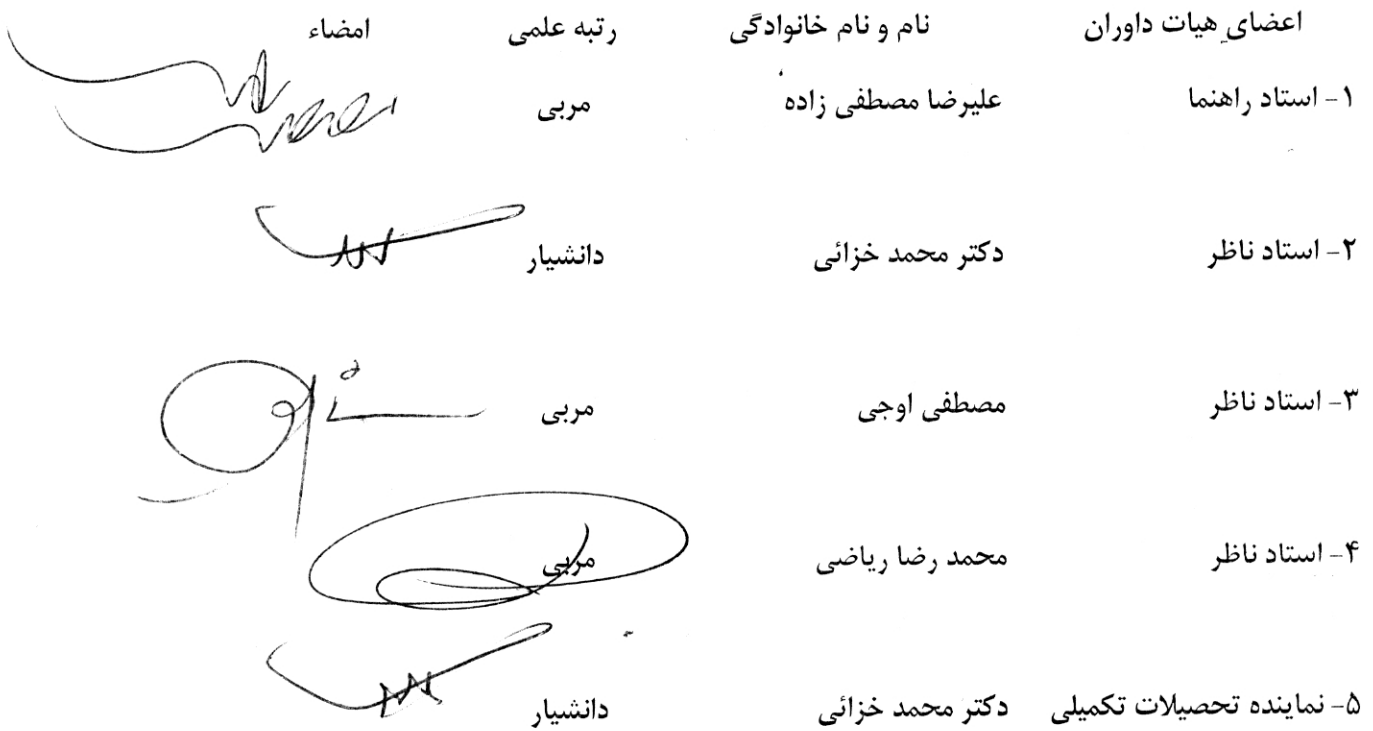 اعضای هیات داوران نام و نام خانوادگی رتبه علمی امضاء
۱- استاد راهنما علیرضا مصطفی زاده مربی
۲- استاد ناظر دکتر محمد خزائی دانشیار
۳- استاد ناظر مصطفی اوجی مربی
۴- استاد ناظر محمد رضا ریاضی مربی
۵- نماینده تحصیلات تکمیلی دکتر محمد خزائی دانشیار